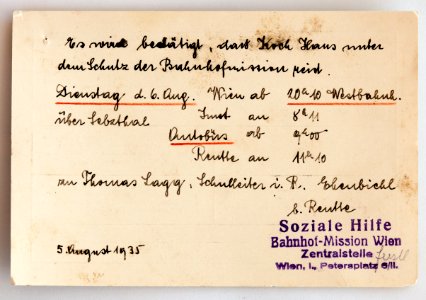 Es wird bestätigt, daß Koch Hans unter
dem Schutz der Bahnhofmission reist.
Dienstag d. 6. Aug. Wien ab 20h10 Westbahnh.
über Selzthal Imst an 8h11
Autobus ab 9h00
Reutte an 11h10
zu Thomas Lagg, Schulleiter i. P. Ehenbichl
b. Reutte
5. August 1935
Soziale Hilfe
Bahnhof-Mission Wien
Zentralstelle
Wien, I., Petersplatz 6/II.